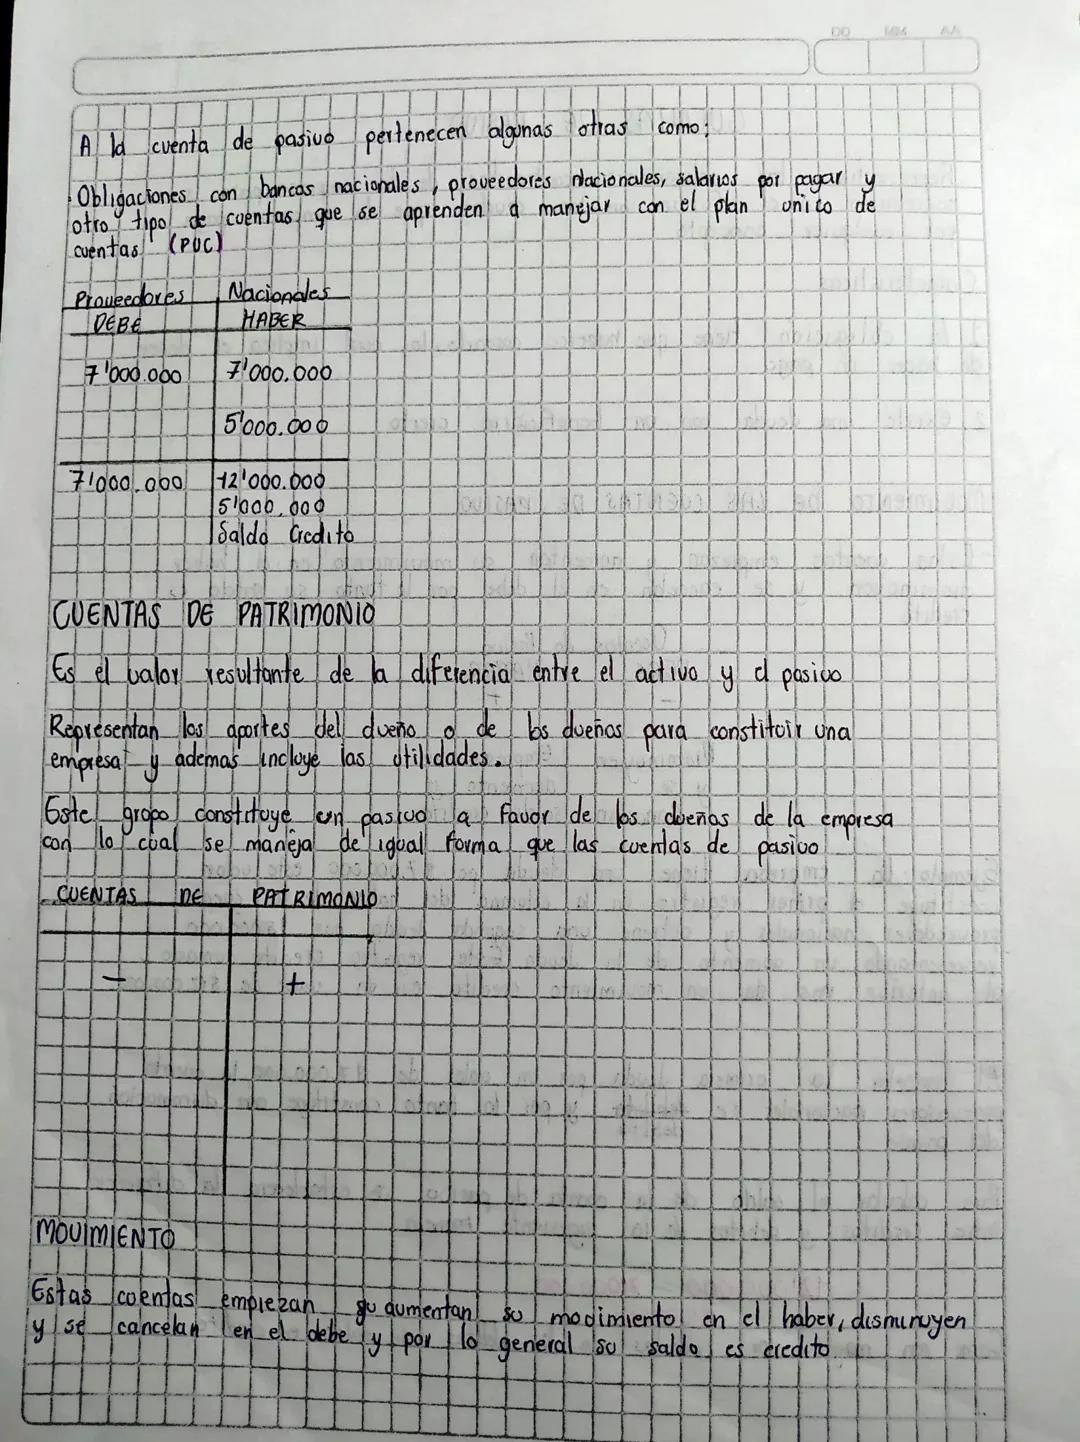 DD MM AA
A la cuenta de pasivo pertenecen algunas otras como;
Obligaciones con bancos nacionales, proveedores Nacionales, salarios por pagar y
otro tipo de cuentas que se aprenden a manejar con el plan unico de
cuentas (PUC)
Proveedores Nacionales
DEBE HABER
7'000.000 7'000.000
5'000.000
7'000.000 12'000.000
5'000.000
Saldo Credito
CUENTAS DE PATRIMONIO
Es el valor resultante de la diferencia entre el activo y el pasivo
Representan los aportes del dueño o de los dueños para constituir una
empresa y ademas incluye las utilidades.
Este grupo constituye un pasivo a favor de los dueños de la empresa
con lo cual se maneja de igual forma que las cuentas de pasivo
CUENTAS DE PATRIMONIO
- +
MOVIMIENTO
Estas cuentas empiezan y aumentan su movimiento en el haber, disminuyen
y se cancelan en el debe y por lo general su saldo es credito.